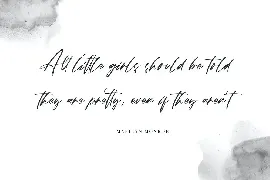 All little girls should be told
they are pretty, even if they aren't
MARILYN MONROE